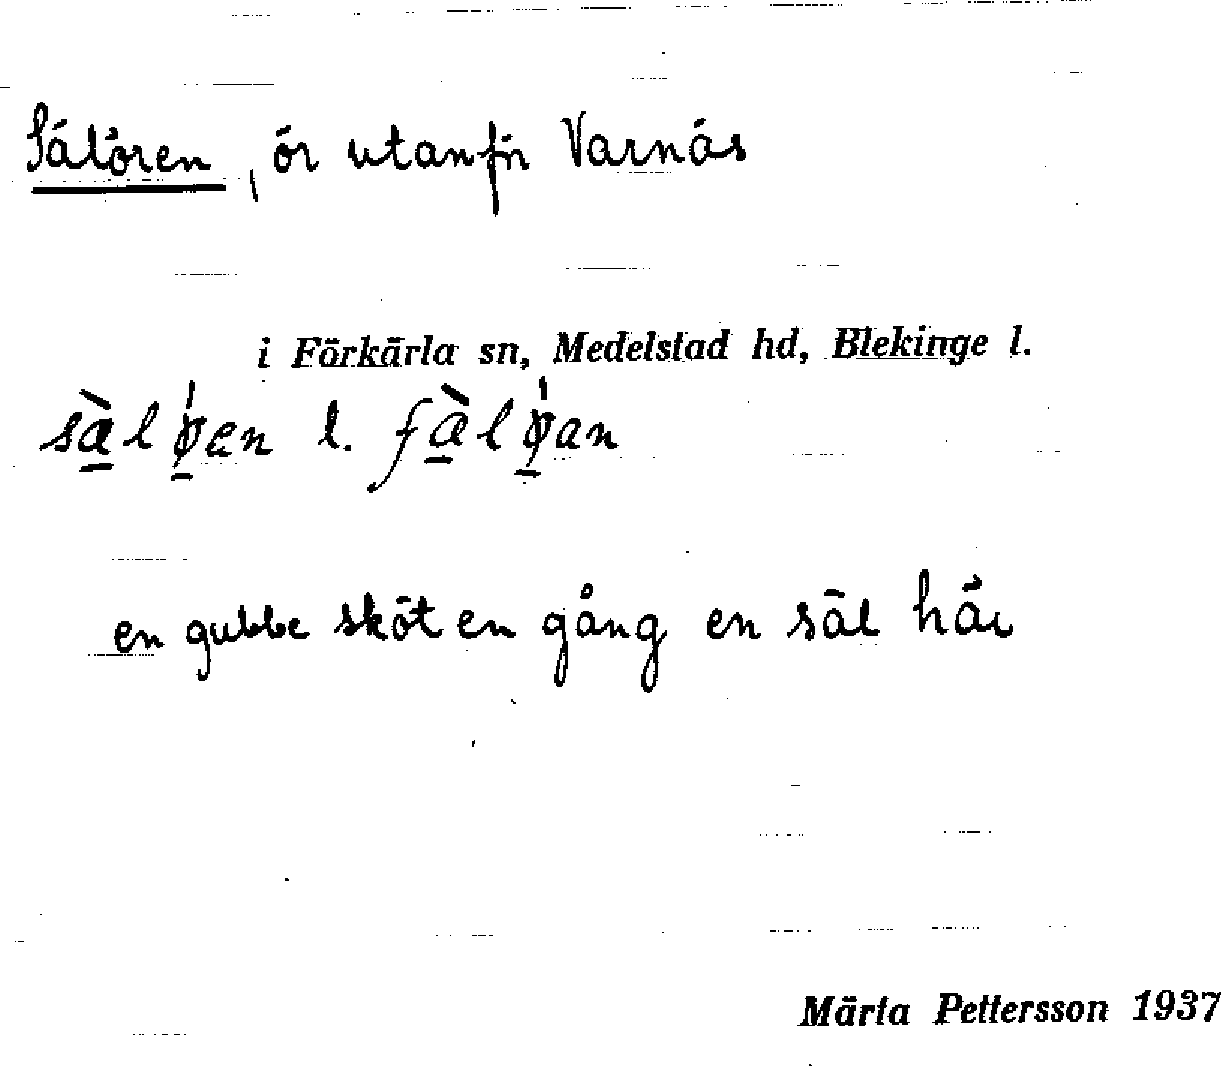 Sälören, ör utanför Varnäs
i Förkärla sn, Medelstad hd, Blekinge l.
sàl øen l. fàl øan
en gubbe sköt en gång en säl här
Märta Pettersson 1937